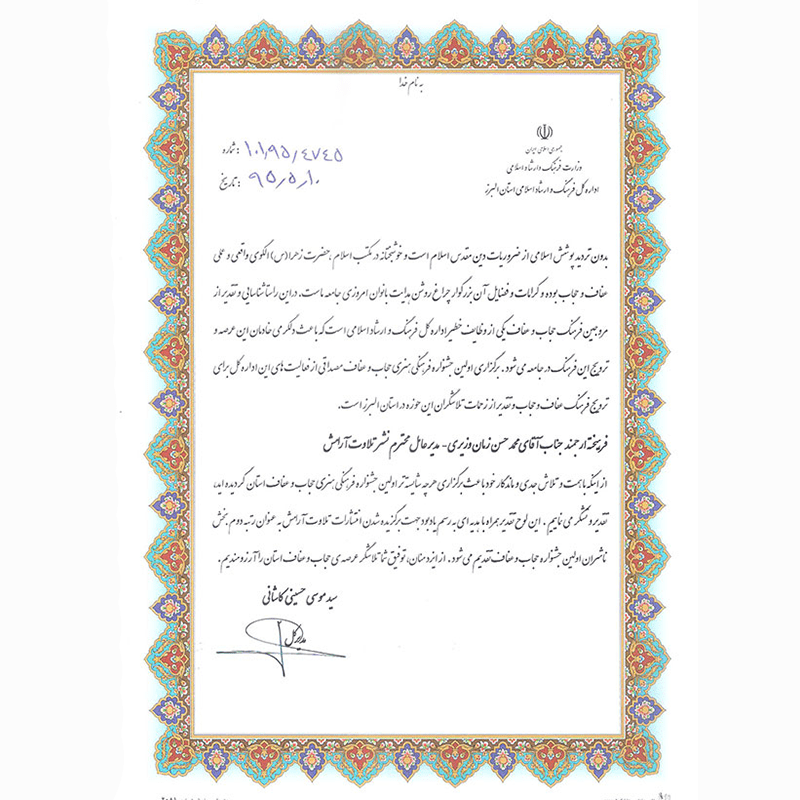 به نام خدا
جمهوری اسلامی ایران
وزارت فرهنگ و ارشاد اسلامی
اداره کل فرهنگ و ارشاد اسلامی استان البرز
شماره: ۱۰۱٫۹۵٫۴۷۴۵
تاریخ: ۹۵٫۵٫۱۰
بدون تردید پوشش اسلامی از ضروریات دین مقدس اسلام است و خوشبختانه در مکتب اسلام، حضرت زهرا (س) الگوی واقعی و عملی
عفاف و حجاب بوده و کرامات و فضایل آن بزرگوار چراغ روشن هدایت بانوان امروزی جامعه ماست. در این راستا شناسایی و تقدیر از
مروجین فرهنگ حجاب و عفاف یکی از وظایف خطیر اداره کل فرهنگ و ارشاد اسلامی است که باعث دلگرمی خادمان این عرصه و
ترویج این فرهنگ در جامعه می شود. برگزاری اولین جشنواره فرهنگی هنری حجاب و عفاف مصداقی از فعالیت های این اداره کل برای
ترویج فرهنگ عفاف و حجاب و تقدیر از زحمات تلاشگران این حوزه در استان البرز است.
فرهیخته ارجمند جناب آقای محمد حسن زمان وزیری - مدیر عامل محترم نشر تلاوت آرامش
از اینکه با همت و تلاش جدی و ماندگار خود باعث برگزاری هرچه شایسته تر اولین جشنواره فرهنگی هنری حجاب و عفاف استان گردیده اید،
تقدیر و تشکر می نماییم. این لوح تقدیر همراه با هدیه ای به رسم یادبود جهت برگزیده شدن انتشارات تلاوت آرامش به عنوان رتبه دوم بخش
ناشران اولین جشنواره حجاب و عفاف تقدیم می شود. از ایزد منان، توفیق شما تلاشگر عرصه ی حجاب و عفاف استان را آرزومندیم.
سید موسی حسینی کاشانی
مدیر کل